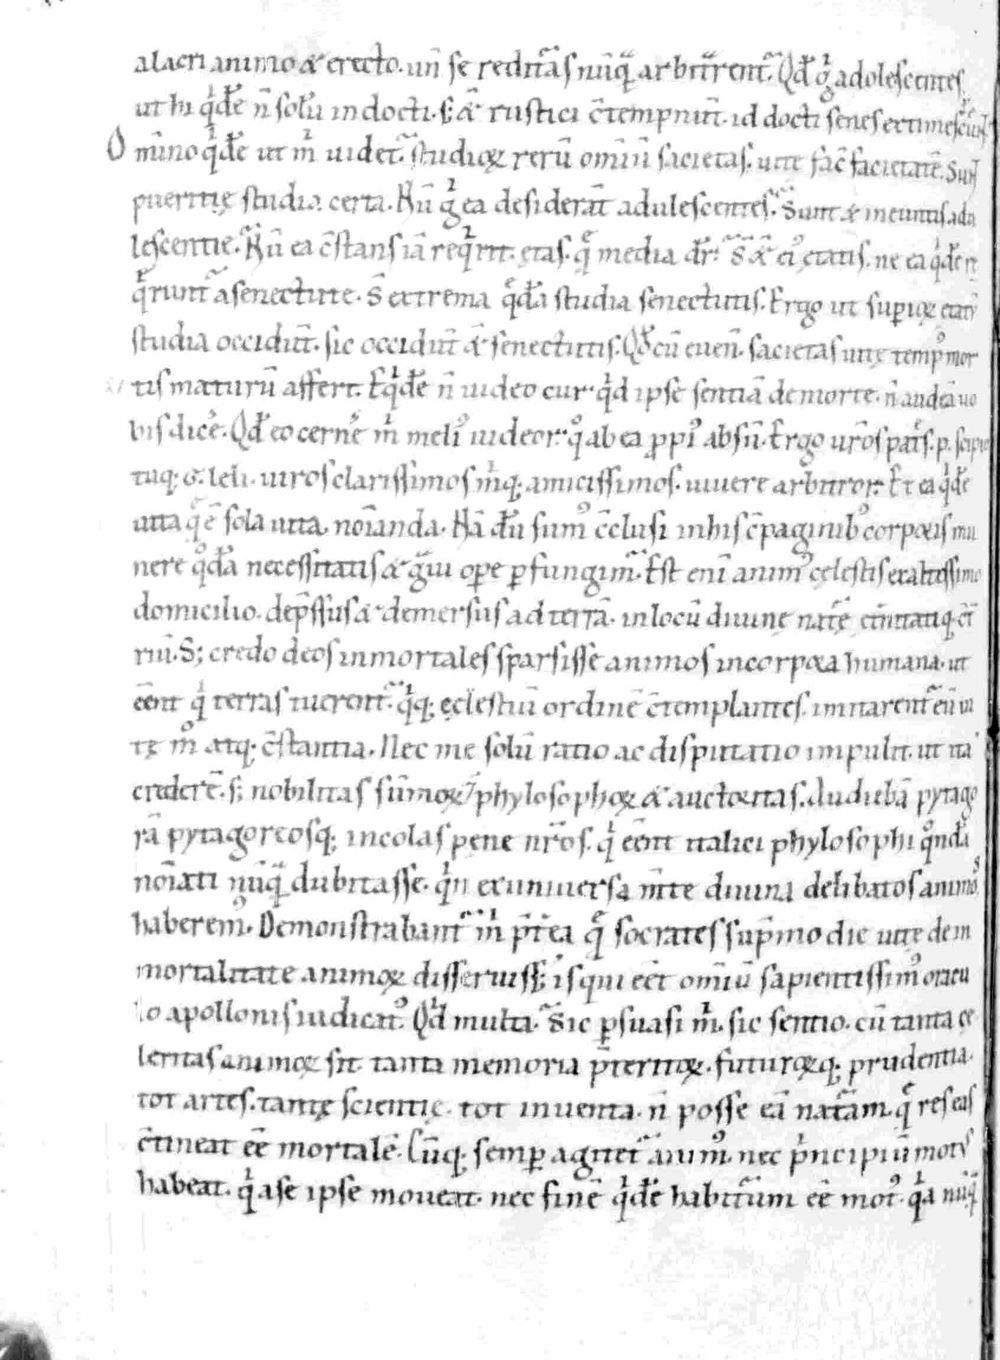 alacri animo & erecto. un̄ se redituras nūq̄ arbitrent᷑. Qd̄ g̊ adolescentes
ut hi qⁱdē n̄ solū indocti. s; & rustici c̄tempnunt. id docti senes extimescūt
Omīno qⁱdē ut mⁱ uidet᷑. studioꝝ rerū omniū sacietas. uite fac̄ sacietatē. Sunt
pueritię studia certa. Nū gⁱ ea desiderant adulescentes. Sunt & ineuntis adu
lescentię. Nū ea c̄stans iā reqⁱrit. ętas. q̄ media dr̄. S̄ & eiꝰ ętatis. ne ea qⁱdē
q̄runt᷑ a senectute. S̄ extrema q̄dā studia senectutis. Ergo ut supioꝝ etatū
studia occidunt. sic occidunt & senectutis. Qd̊ cū euen̄. sacietas uitę tempꝰ mor
tis maturū affert. Eqⁱdē n̄ uideo cur. qⁱd ipse sentiā de morte. n̄ audeā uo
bis dicē. Qd̄ eo cernē mⁱ meliꝰ uideor. q̊ ab ea ꝓpiꝰ absū. Ergo ur̄os patr̄s. p. scipio
tuq; G. leli. uiros clarissimos mⁱq; amicissimos. uiuere arbitror. Et ea qⁱdē
uita q̄ ē sola uita. noīanda. Nā dū sumꝰ c̄clusi in his c̄paginibꝰ corporis mu
nere q̊dā necessitatis & g̃ui opere ꝑfungim᷑. Est enī animꝰ cęlestis ex altissimo
domicilio. dep̄ssus & demersus ad terrā. in locū diuinę natᷓę etn̄itatiq; c̄t
riū. S; credo deos inmortales sparsisse animos in corpora humana. ut
eēnt qⁱ terras tuerent᷑. qⁱq; cęlestiū ordinē c̄templantes. imitarent᷑ eū ui
tę m̊ atq; c̄stantia. Nec me solū ratio ac disputatio impulit. ut ita
crederē. s; nobilitas sūmoꝝ phylosophoꝝ & auctoritas. Audiebā pytago
rā pytagoreosq; incolas pene nr̄os. qⁱ eēnt italici phylosophi q̊ndā
noīati nūq̄ dubitasse. qⁱn ex uniuersa m̄te diuina delibatos animos
haberemꝰ. Demonstrabant᷑ mⁱ p̄t̄ea q̄ socrates sup̄mo die uitę de in
mortalitate animoꝝ disseruiss; is qui eēt omniū sapientissimꝰ oracu
lo apollonis iudicatꝰ. Qⁱd multa. Sic ꝑsuasi mⁱ. sic sentio. cū tanta ce
leritas animoꝝ sit. tanta memoria p̄teritoꝝ. futuroꝝq; prudentia.
tot artes. tantę scientię. tot inuenta. n̄ posse eā natᷓam. q̄ res eas
c̄tineat eē mortalē. Cūq; semꝑ agitet᷑ animꝰ. nec pⁱncipiū motꝰ
habeat. qⁱa se ipse moueat. nec finē qⁱdē habiturum eē motꝰ. qⁱa nūq̄